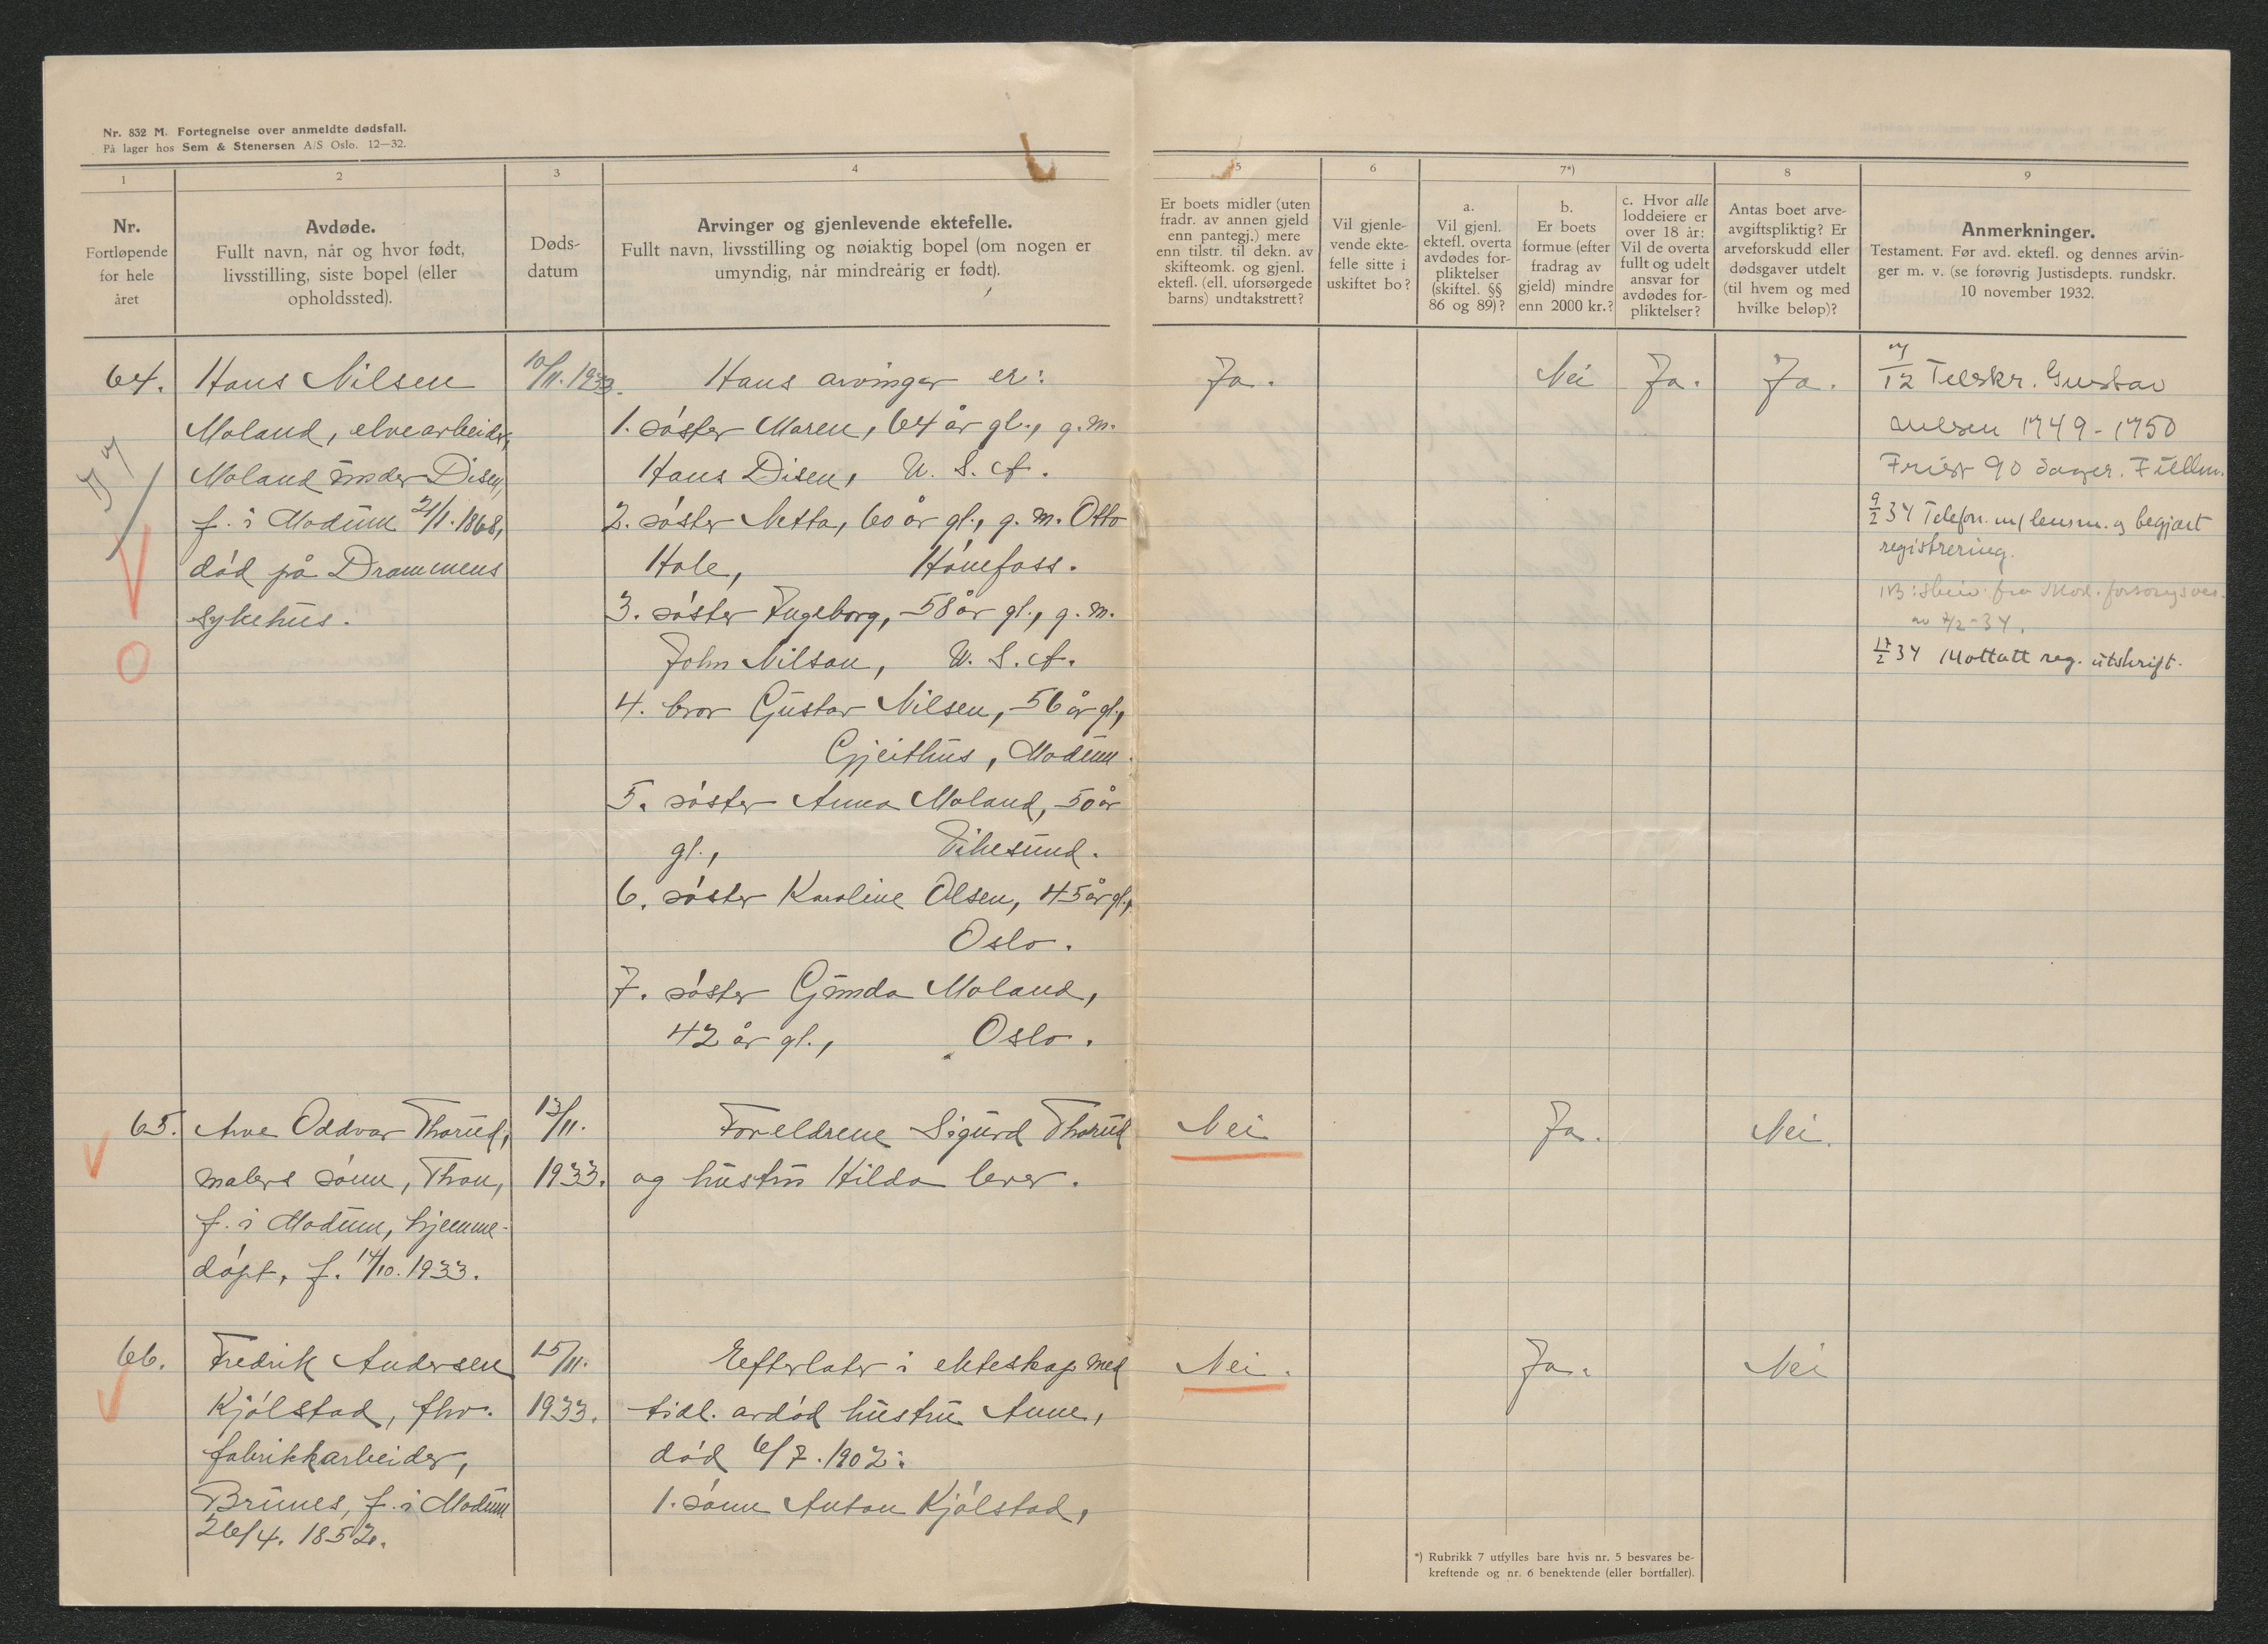 Nr. 832 M. Fortegnelse over anmeldte dødsfall.
På lager hos Sem & Stenersen A/S Oslo. 12—32.
1
2
3
4
5
6
7*)
8
9
Nr.
Fortløpende
for hele
året
Avdøde.
Fullt navn, når og hvor født,
livsstilling, siste bopel (eller
opholdssted).
Døds-
datum
Arvinger og gjenlevende ektefelle.
Fullt navn, livsstilling og nøiaktig bopel (om nogen er
umyndig, når mindreårig er født).
Er boets midler (uten
fradr. av annen gjeld
enn pantegj.) mere
enn tilstr. til dekn. av
skifteomk. og gjenl.
ektefl. (ell. uforsørgede
barns) undtakstrett?
Vil gjenle-
vende ekte-
felle sitte i
uskiftet bo?
a.
Vil gjenl.
ektefl. overta
avdødes for-
pliktelser
(skiftel. §§
86 og 89)?
b.
Er boets
formue (efter
fradrag av
gjeld) mindre
enn 2000 kr.?
c. Hvor alle
loddeiere er
over 18 år:
Vil de overta
fullt og udelt
ansvar for
avdødes for-
pliktelser?
Antas boet arve-
avgiftspliktig? Er
arveforskudd eller
dødsgaver utdelt
(til hvem og med
hvilke beløp)?
Anmerkninger.
Testament. Før avd. ektefl. og dennes arvin-
ger m. v. (se forøvrig Justisdepts. rundskr.
10 november 1932.
64.
Hans Nilsen
Moland, elvearbeider,
Moland under Disen,
f. i Modum 21/1. 1868,
død på Drammens
sykehus.
10/11. 1933.
Hans arvinger er:
1. søster Maren, 64 år gl., g. m.
Hans Disen, U. S. A.
2. søster Netta, 60 år gl., g. m. Otto
Hole, Hønefoss.
3. søster Ingeborg, 58 år gl., g. m.
John Nilsen, U. S. A.
4. bror Gustav Nilsen, 56 år gl.,
Gjeithus, Modum.
5. søster Anna Moland, 50 år
gl., Vikesund.
6. søster Karoline Olsen, 45 år gl.,
Oslo.
7. søster Gunda Moland,
42 år gl., Oslo.
Ja.
Nei
Ja.
Ja.
7/12 Tilskr. Gustav
Nilsen 1749-1750
Frist 90 dager.
9/2 34 Telefon. m/ lensm. og begjært
registrering.
NB: skriv fra Mod. forsorgsves.
av 7/2-34.
17/2 34 Mottatt reg. utskrift.
65.
Arve Oddvar Thorud,
malers sønn, Thon,
f. i Modum, hjemme-
døpt, f. 14/10. 1933.
13/11.
1933.
Foreldrene Sigurd Thorud
og hustru Hilda lever.
Nei
Ja.
Nei.
66.
Fredrik Andersen
Kjølstad, fhv.
fabrikkarbeider,
Brunes, f. i Modum
26/4. 1852.
15/11.
1933.
Efterlater i ekteskap med
tidl. avdød hustru Anne,
død 6/7. 1902:
1. sønn Anton Kjølstad,
Nei.
Ja.
Nei
*) Rubrikk 7 utfylles bare hvis nr. 5 besvares be-
kreftende og nr. 6 benektende (eller bortfaller).